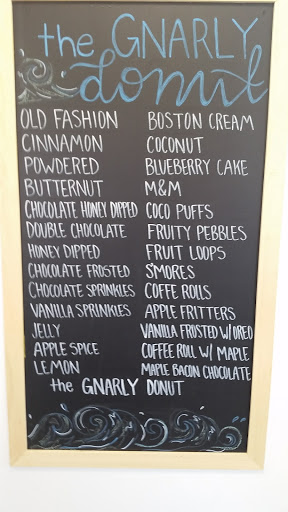 the GNARLY
donut
OLD FASHION
CINNAMON
POWDERED
BUTTERNUT
CHOCOLATE HONEY DIPPED
DOUBLE CHOCOLATE
HONEY DIPPED
CHOCOLATE FROSTED
CHOCOLATE SPRINKLES
VANILLA SPRINKLES
JELLY
APPLE SPICE
LEMON
BOSTON CREAM
COCONUT
BLUEBERRY CAKE
M&M
COCO PUFFS
FRUITY PEBBLES
FRUIT LOOPS
S'MORES
COFFE ROLLS
APPLE FRITTERS
VANILLA FROSTED W/OREO
COFFEE ROLL W/ MAPLE
MAPLE BACON CHOCOLATE
the GNARLY DONUT